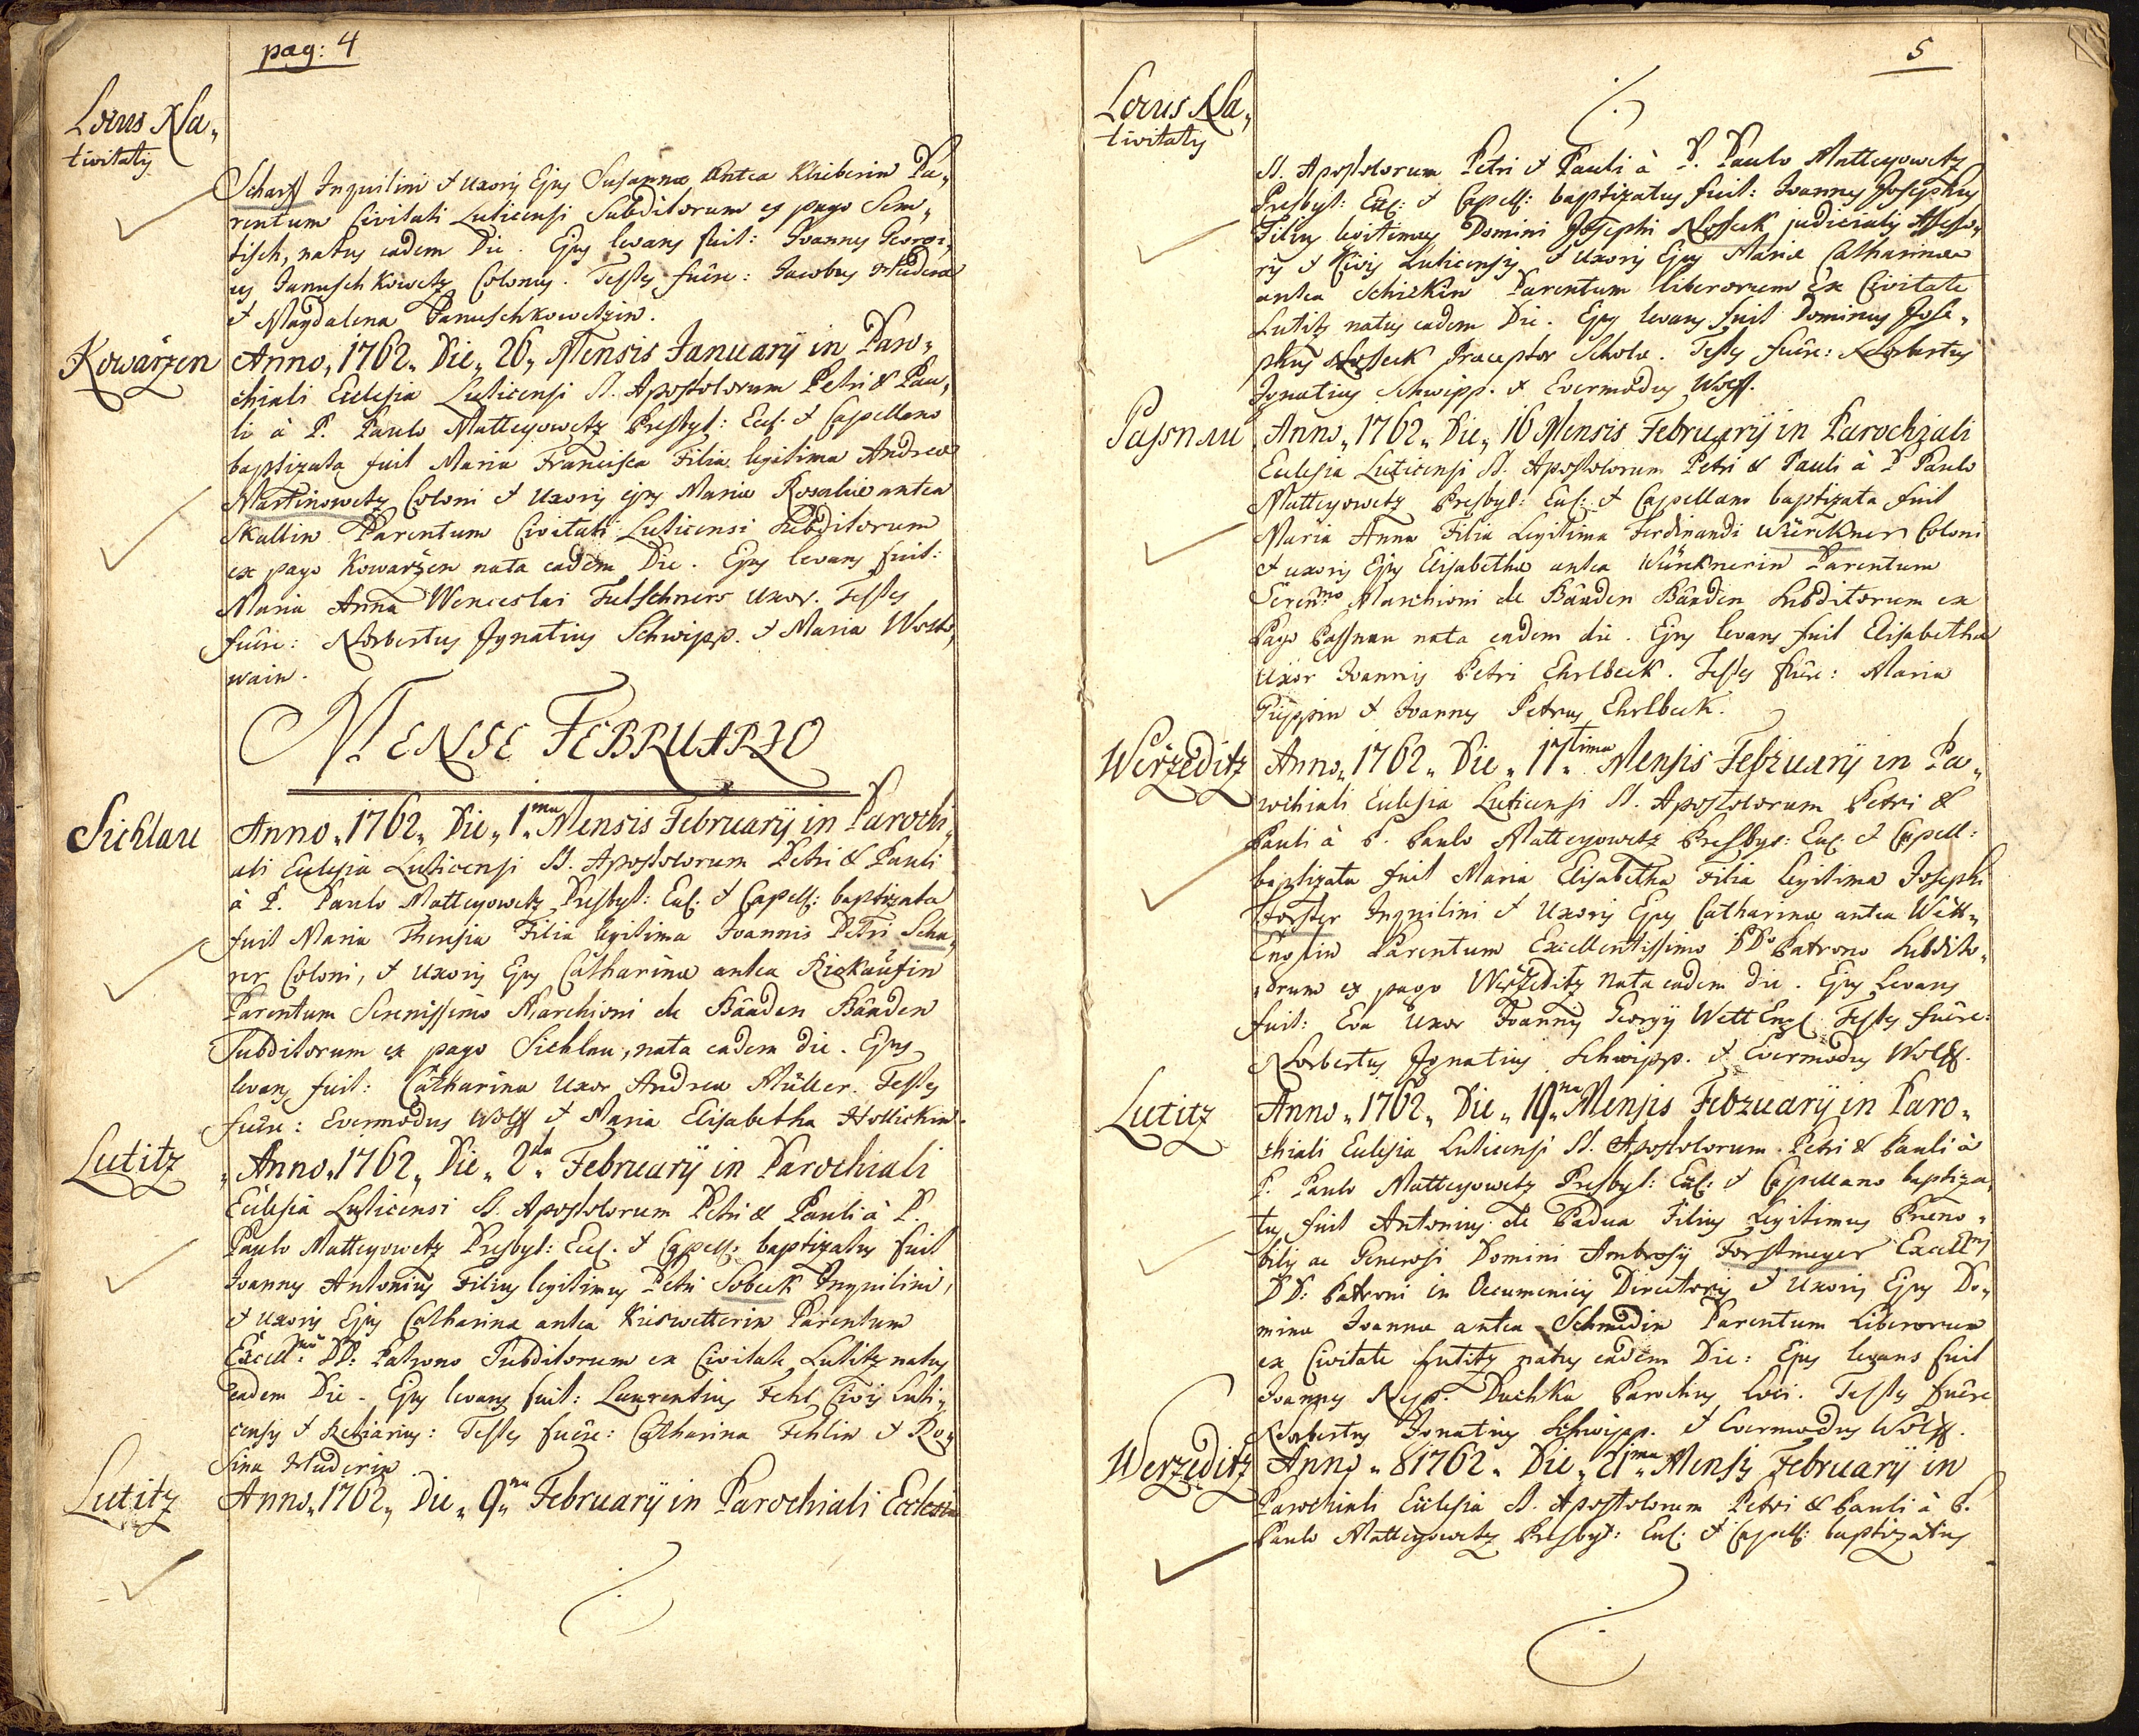 pag: 4
Locus Na„
tivitatis
Scharff Inquilini & Uxoris Ejus Susannæ antea Klieberin Pa„
rentum Civitati Luticensi Subditorum ex pago Sem„
tisch, natus eadem Die. Ejus levans fuit: Joannes Georgi„
us Januschkowetz Colonus. Testes fuêre: Jacobus Hudera
& Magdalena Januschkowetzin.
Kowařzen
Anno„ 1762„ Die„ 26„ Mensis Januarij in Paro„
chiali Ecclesia Luticensi SS. Apostolorum Petri & Pau„
li à P. Paulo Matteyowetz Presbyt: Ecc: & Capellano
baptizata fuit Maria Francisca Filia legitima Andreæ
Martinowetz Coloni & Uxoris ejus Mariæ Rosaliæ antea
Skallin Parentum Civitati Luticensi Subditorum
ex pago Kowařzen nata eadem Die. Ejus levans fuit:
Maria Anna Wenceslai Futschners Uxor. Testes
fuêre: Norbertus Ignatius Schwipp. & Maria
wain.
MENSE FEBRUARIO
Sichlau
Anno„ 1762„ Die„ 1„ma Mensis Februarij in Parochi„
ali Ecclesia Luticensi SS. Apostolorum Petri & Pauli
à P. Paulo Matteyowetz Presbyt: Ecc: & Capell: baptizata
fuit Maria Theresia Filia legitima Joannis Petri Scha„
rer Coloni, & Uxoris Ejus Catharinæ antea Riekaufin
Parentum Serenissimo Marchioni de Baaden Baaden
Subditorum ex pago Sichlau, nata eadem die. Ejus
levans fuit: Catharina Uxor Andreæ Müller. Testes
fuêre: Evermodus Wolff & Maria Elisabetha Hollickin.
Lutitz
„Anno„ 1762„ Die„ 2„da Februarij in Parochiali
Ecclesia Luticensi SS. Apostolorum Petri & Pauli à P.
Paulo Matteyowetz Presbyt: Ecc: & Capell: baptizatus fuit
Joannes Antonius Filius legitimus Petri Sobeck Inquilini,
& Uxoris Ejus Catharina antea Kieswetterin Parentum
Excell:mo DD: Patrono Subditorum ex Civitate Lutitz natus
eadem Die. Ejus levans fuit: Laurentius Fehl Civis Luti„
censis & Retiarius: Testes fuêre: Catharina Fehlin & Ro„
sina Huderin.
Lutitz
Anno„ 1762„ Die„ 9„na Februarij in Parochiali Ecclesia
5
Locus Na„
tivitatis
SS. Apostolorum Petri & Pauli à P. Paulo Matteyowetz
Presbyt: Ecc: & Capell: baptizatus fuit: Joannes Josephus
Filius legitimus Domini Josephi Nosseck judicialis Assesso„
ris & Civis Luticensis & Uxoris Ejus Mariæ Catharinæ
antea Schickin Parentum liberorum ex Civitate
Lutitz natus eadem Die. Ejus levans fuit Dominus Jose„
phus Nosseck Præceptor Scholæ. Testes fuêre: Norbertus
Ignatius Schwipp. & Evermodus Wolff.
Passnau
Anno„ 1762„ Die„ 16 Mensis Februarij in Parochiali
Ecclesia Luticensi SS. Apostolorum Petri & Pauli à P. Paulo
Matteyowetz Presbyt: Ecc: & Capellano baptizata fuit
Maria Anna Filia Legitima Ferdinandi Würckner Coloni
& uxoris Ejus Elisabethæ antea Würcknerin Parentum
Seren:mo Marchioni de Baaden Baaden Subditorum ex
Pago Passnau nata eadem die. Ejus levans fuit Elisabetha
Uxor Joannis Petri Ehrlbeck. Testes fuêre: Maria
Püppin & Joannes Petrus Ehrlbeck.
Weržeditz
Anno„ 1762„ Die„ 17„tima Mensis Februarij in Pa„
rochiali Ecclesia Luticensi SS. Apostolorum Petri &
Pauli à P. Paulo Matteyowetz Presbyt: Ecc: & Capell:
baptizata fuit Maria Elisabetha Filia legitima Josephi
Forster Inquilini & Uxoris Ejus Catharinæ antea Wett„
Englin Parentum Excellentissimo DDo Patrono Subdito„
„orum ex pago Weržeditz nata eadem die. Ejus Levans
fuit: Eva Uxor Joannis Georgij WettEngl. Testes fuêre:
Norbertus Ignatius Schwipp. & Evermodus Wolff.
Lutitz
Anno„ 1762„ Die„ 19„na Mensis Februarij in Paro„
chiali Ecclesia Luticensi SS. Apostolorum Petri & Pauli à
P. Paulo Matteyowetz Presbyt: Ecc: & Capellano baptiza„
tus fuit Antonius de Padua Filius Legitimus Præno„
bilis ac Generosi Domini Ambrosij Forstmeyer Excell:mi
DD: Patroni in Oeconomicis Directoris & Uxoris Ejus Do„
minæ Joannæ antea Schmidin Parentum Liberorum
ex Civitate Lutitz natus eadem Die: Ejus levans fuit
Joannes Nep. Duchka Parochus loci. Testes fuêre
Norbertus Ignatius Schwipp. & Evermodus Wolff.
Werzeditz
Anno„ 81762„ Die„ 21„ma Mensis Februarij in
Parochiali Ecclesia SS. Apostolorum Petri & Pauli à P.
Paulo Matteyowetz Presbyt: Ecc: & Capell: baptizatus